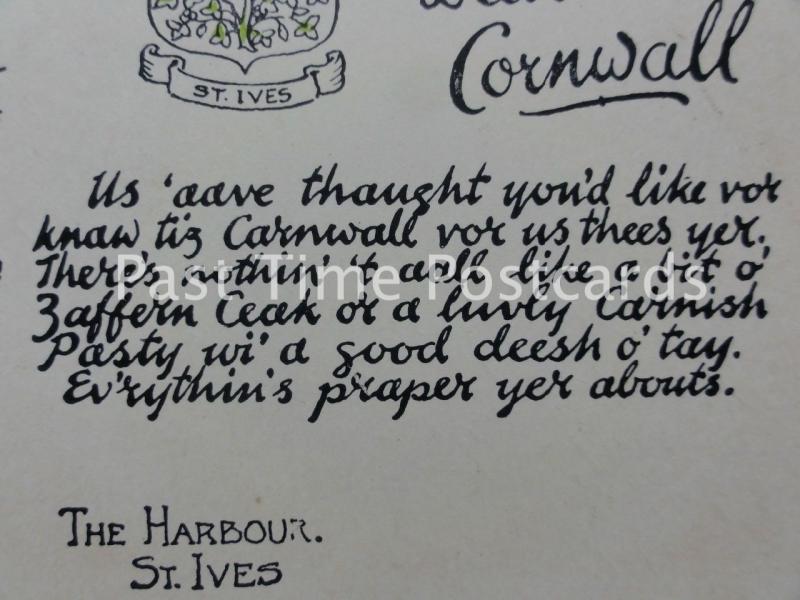 Cornwall
ST. IVES
Us 'aave thaught you'd like vor
knaw tiz Carnwall vor us thees yer.
There's nothin' 't aall like a bit o'
Zaffern Ceak or a luvly Carnish
Pasty wi' a good deesh o' tay.
Ev'rythin's praper yer abouts.
Past Time Postcards
THE HARBOUR.
ST. IVES